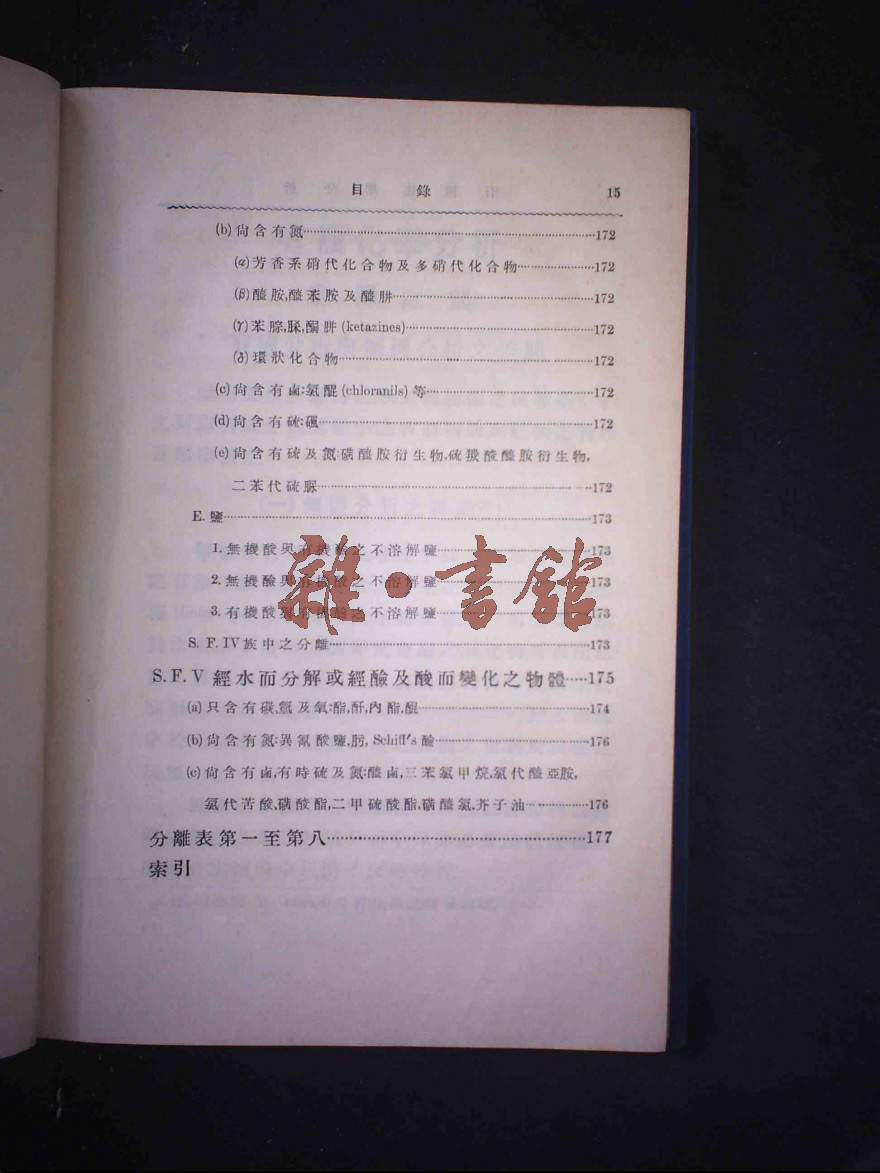 目錄 15
(b)尙含有氮……172
(α)芳香系硝代化合物及多硝代化合物……172
(β)醯胺,醯苯胺及醯肼……172
(γ)苯腙,脎,酮肼(ketazines)……172
(δ)環狀化合物……172
(c)尙含有鹵:氯醌(chloranils)等……172
(d)尙含有硫:碸……172
(e)尙含有硫及氮:磺醯胺衍生物,硫羰酸醯胺衍生物,
二苯代硫脲……172
E.鹽……173
1.無機酸與有機鹼之不溶解鹽……173
2.無機鹼與有機酸之不溶解鹽……173
3.有機酸與有機鹼之不溶解鹽……173
S. F. IV族中之分離……173
S. F. V 經水而分解或經鹼及酸而變化之物體……175
(a)只含有碳,氫及氧:酯,酐,內酯,醌……174
(b)尙含有氮:異氰酸鹽,肟,Schiff's鹼……176
(c)尙含有鹵,有時硫及氮:醯鹵,三苯氯甲烷,氯代醯亞胺,
氯代苦酸,磺酸酯,二甲硫酸酯,磺醯氯,芥子油……176
分離表第一至第八……177
索引
雜·書館